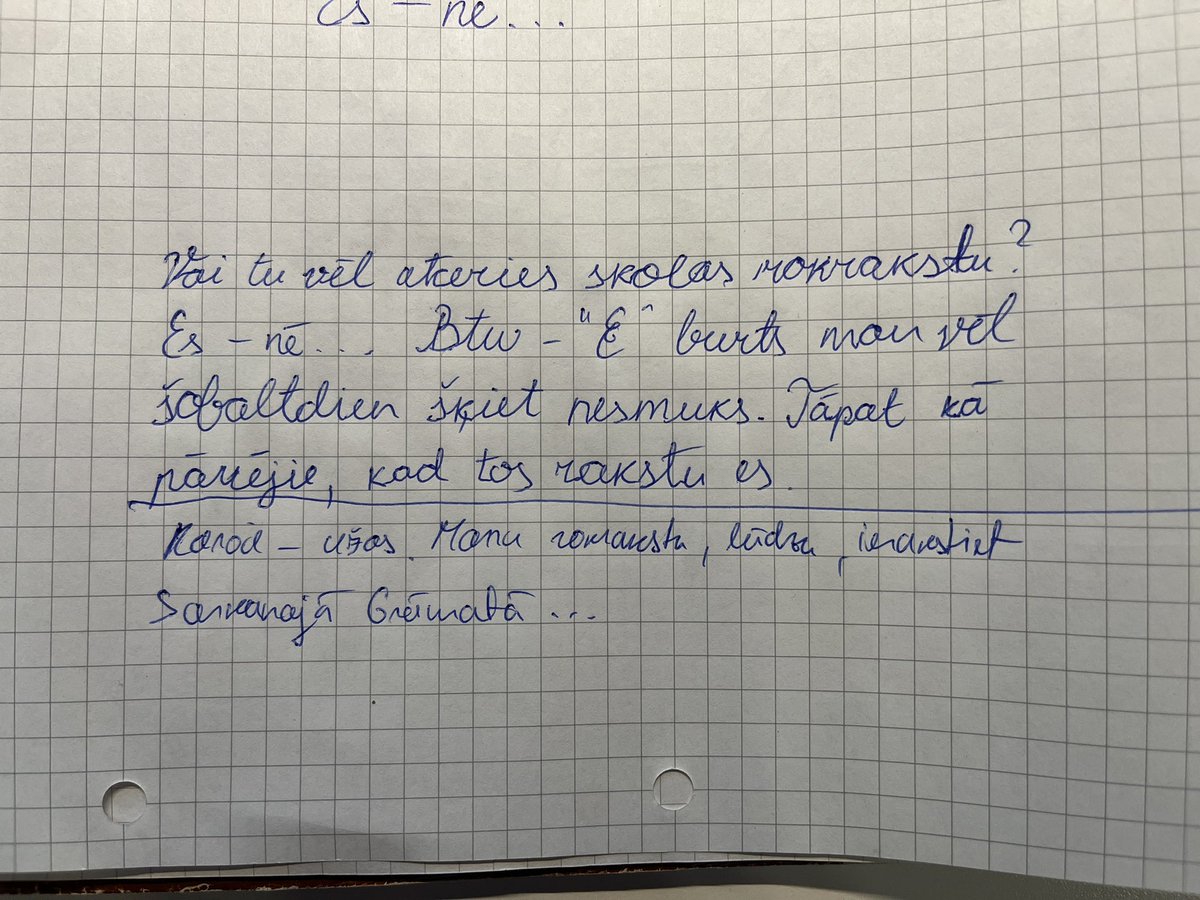 Es – nē...
Vai tu vēl atceries skolas rokrakstu?
Es – nē... Btw – "E" burts man vēl
šobaltdien šķiet nesmuks. Tāpat kā
pārējie, kad tos rakstu es.
– užas. Manu rokrakstu, lūdzu, ierakstiet
Sarkanajā Grāmatā ...